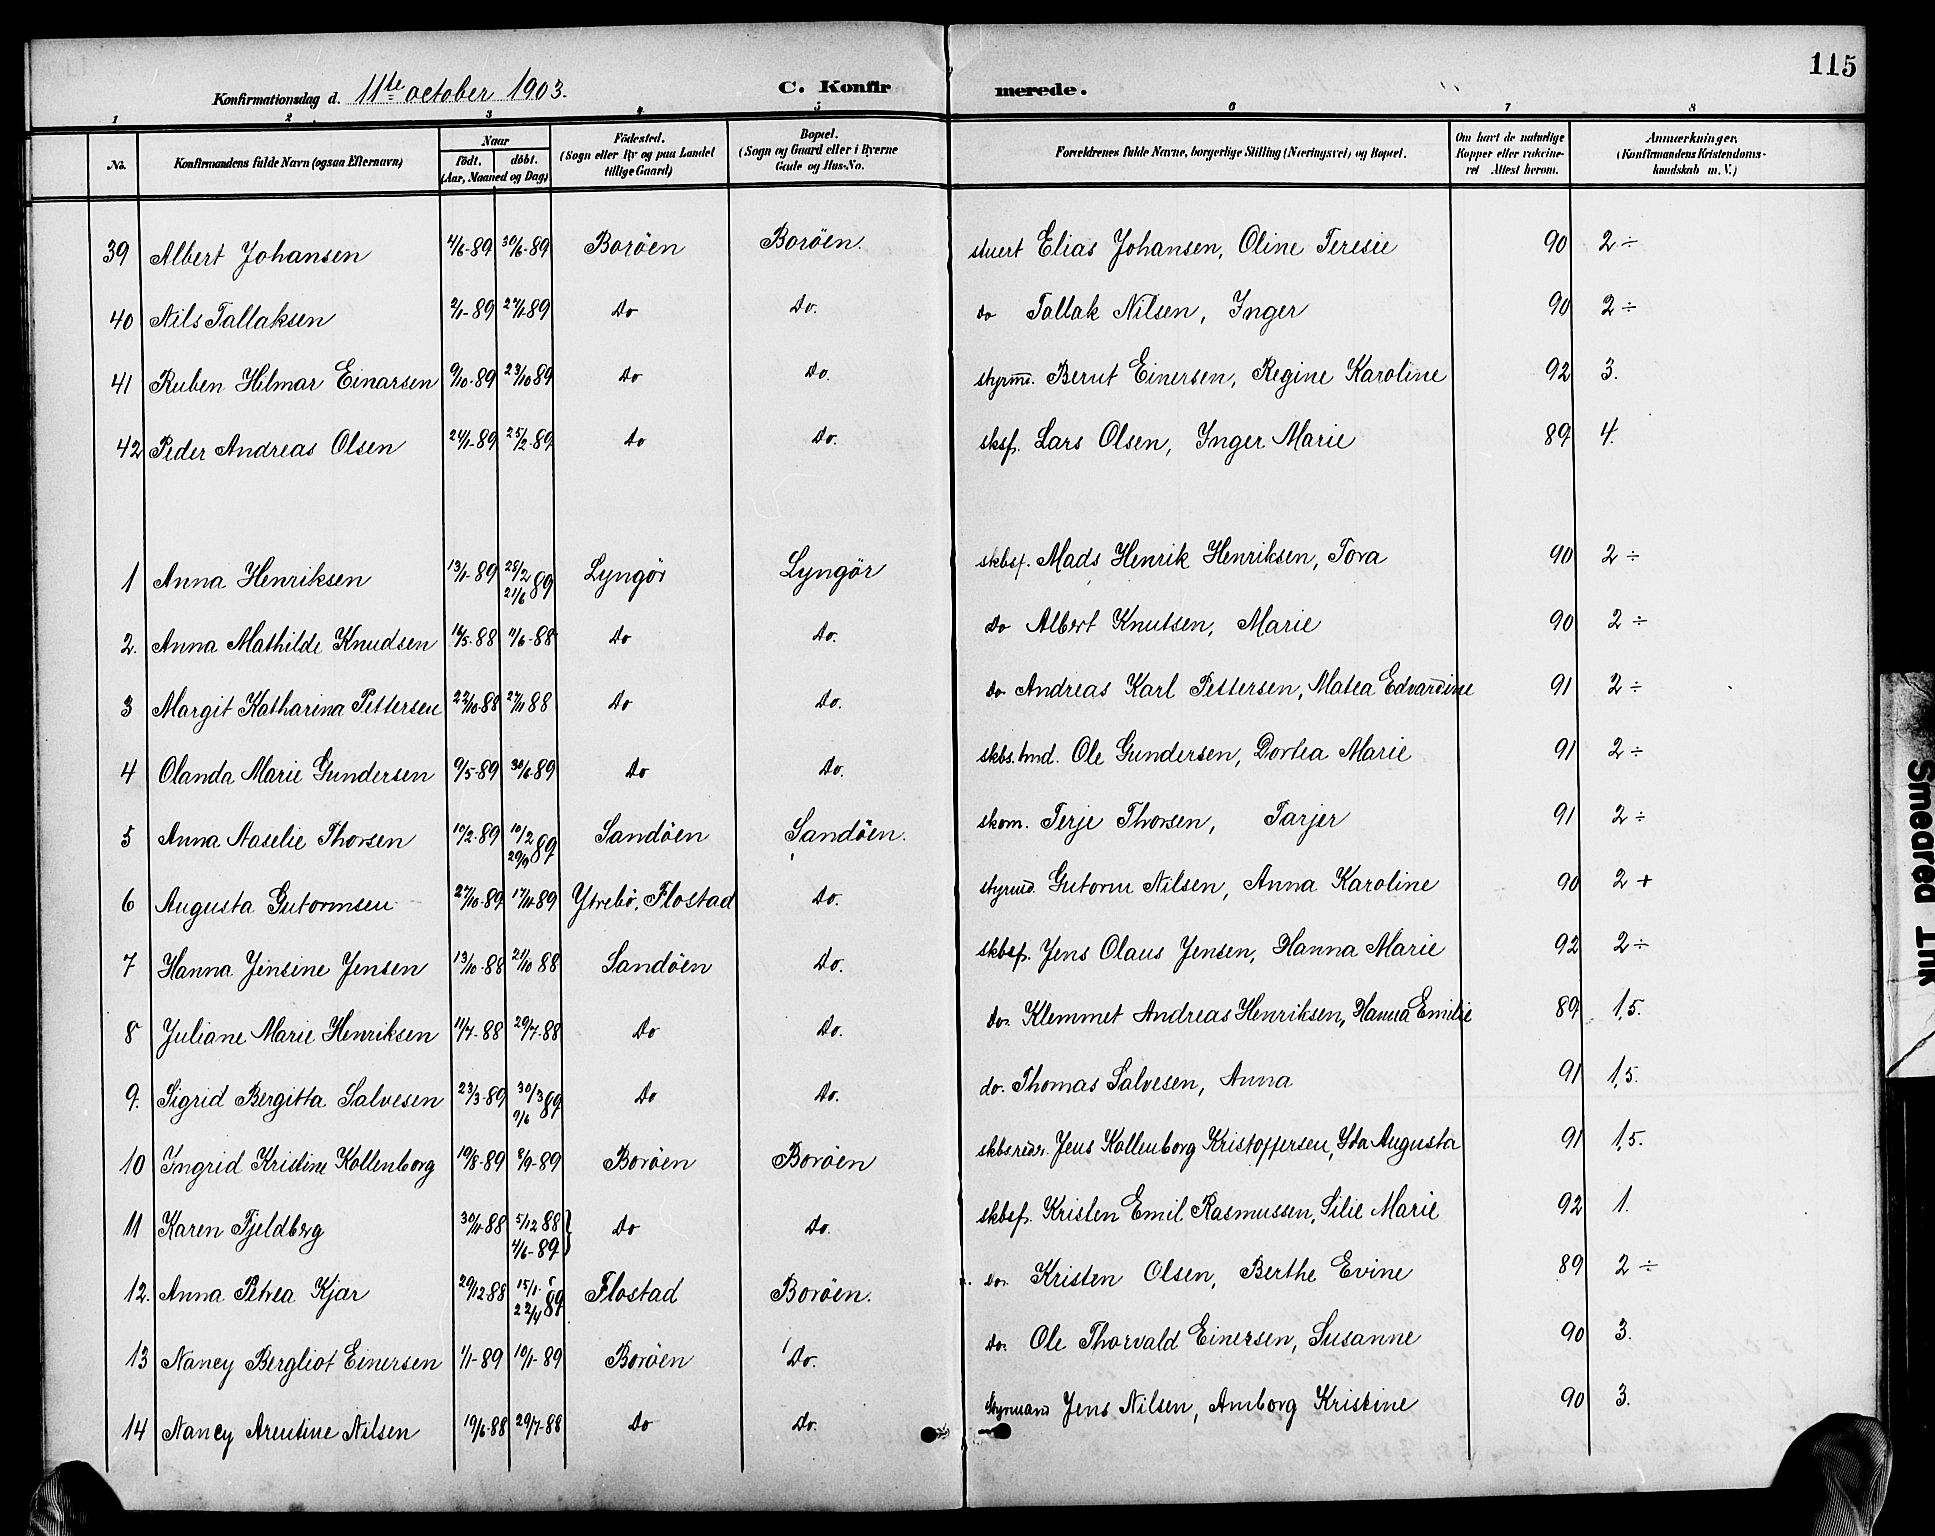 115
Konfirmationsdag d. 11te october 1903. C. Konfirmerede.
1 2 3 4 5 6 7 8
No. Konfirmandens fulde Navn (ogsaa Efternavn) Naar födt. döbt. (Aar, Maaned og Dag) Födested. (Sogn eller By og paa Landet tillige Gaard) Bopæl. (Sogn og Gaard eller i Byerne Gade og Hus-No. Forældrenes fulde Navne, borgerlige Stilling (Næringsvei) og Bopæl. Om havt de naturlige Kopper eller vakcineret Attest herom. Anmærkninger. (Konfirmandens Kristendomskundskab m. V.)
39 Albert Johansen 4/6-89 30/6-89 Boröen Boröen. stuert Elias Johansen, Oline Teresie 90 2÷
40 Nils Tallaksen 2/1-89 27/1-89 Do Do. do Tallak Nilsen, Inger 90 2÷
41 Ruben Hilmar Einarsen 9/10-89 23/10 89 Do Do. styrm. Bernt Einersen, Regine Karoline 92 3.
42 Peder Andreas Olsen 24/1-89 25/2-89 Do Do. sksf. Lars Olsen, Inger Marie 89 4.
1 Anna Henriksen 13/1-89 28/2 21/6 89 Lyngör Lyngör skbsf. Mads Henrik Henriksen, Tora 90 2÷
2. Anna Mathilde Knudsen 16/5-88 7/6-88 Do Do. do Albert Knutsen, Marie 90 2÷
3 Margit Katharina Pettersen 22/10-88 27/11 88 Do Do. do. Andreas Karl Pettersen, Matea Edvardine 91 2÷
4 Olanda Marie Gundersen 9/5-89 30/6-89 Do Do. skbs.tmd. Ole Gundersen, Dortea Marie 91 2÷
5 Anna Aaselie Thorsen 10/2-89 10/2 29/9 89 Sandöen Sandöen. skom. Terje Thorsen, Tarjer 91 2÷
6 Augusta Gutormsen 27/10-89 17/11-89 Ytrebö, Flostad Do. styrmd. Gutorm Nilsen, Anna Karoline 90 2+
7 Hanna Jensine Jensen 13/10-88 21/10 88 Sandöen Do. skbsf. Jens Olaus Jensen, Hanna Marie 92 2÷
8 Juliane Marie Henriksen 11/7-88 29/7-88 Do Do. do. Klemmet Andreas Henriksen, Hanna Emilie 89 1,5.
9. Sigrid Bergitta Salvesen 23/3-89 30/3 9/6 89 Do Do. do. Thomas Salvesen, Anna 91 1,5.
10 Ingrid Kristine Kollenborg 19/8-89 8/9-89 Boröen Boröen skbsredr. Jens Kollenborg Kristoffersen, Ida Augusta 91 1,5.
11 Karen Fjeldberg 30/11-88 5/12 88 4/6-89 } Do Do. skbsf. Kristen Emil Rasmussen, Silie Marie 92 1.
12. Anna Petrea Kjær 29/12-88 15/1 22/4 89 Flostad Boröen. do. Kristen Olsen, Berthe Evine 89 2÷
13 Nancy Bergliot Einersen 1/1-89 10/1-89 Boröen Do. do. Ole Thorvald Einersen, Susanne 90 3.
14 Nancy Arentine Nilsen 19/6-88 29/7-88 Do Do. Styrmand Jens Nilsen, Amborg Kristine 90 3.
Smeared Ink